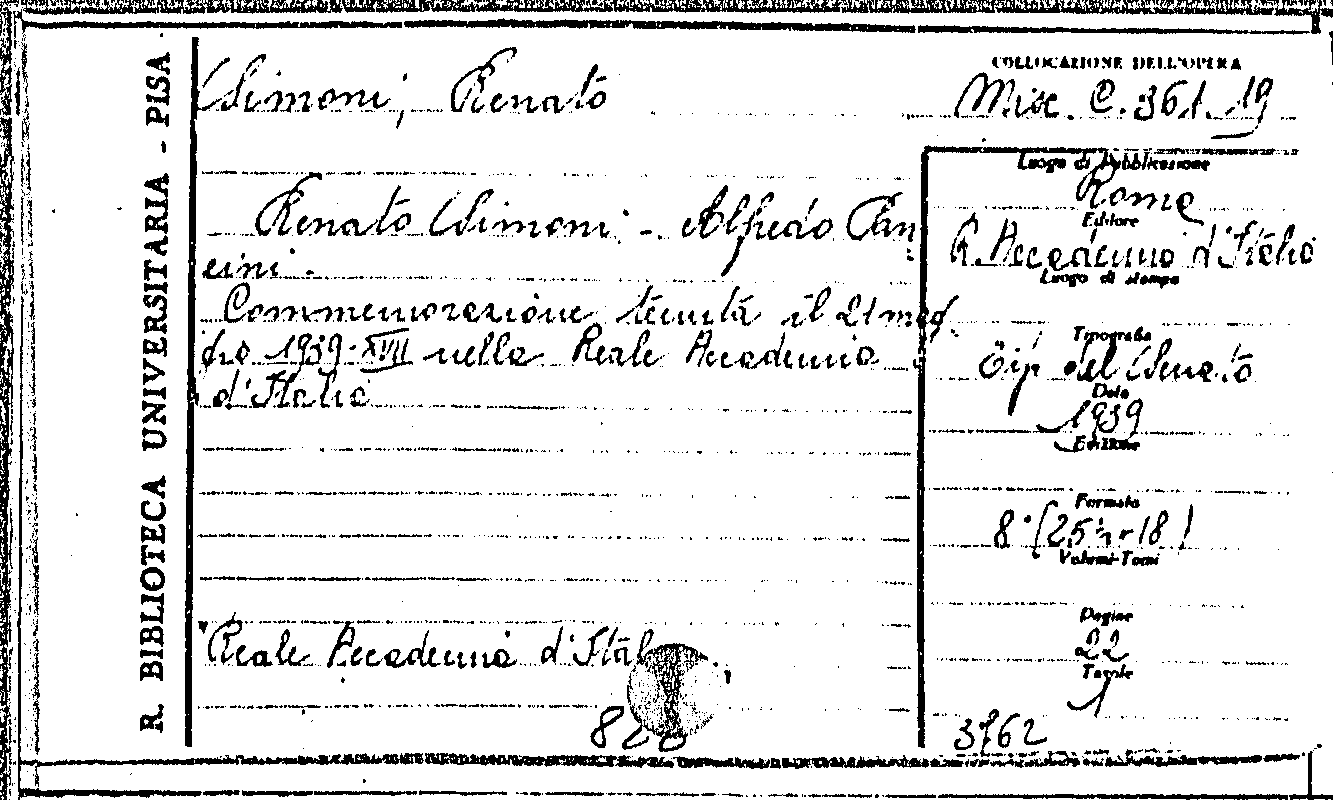 R. BIBLIOTECA UNIVERSITARIA - PISA
Simoni, Renato
COLLOCAZIONE DELL'OPERA
Misc. C. 361. 19
Renato Simoni - Alfredo Pan
zini.
Commemorazione tenuta il 21 mag
gio 1939-XVII nella Reale Accademia
d'Italia
Reale Accademia d'Ital
Luogo di Pubblicazione
Roma
Editore
R. Accademia d'Italia
Luogo di stampa
Tipografia
Tip del Senato
Data
1939
Edizione
Formato
8° (25½-18)
Volumi-Tomi
Pagine
22
Tavole
1
3762